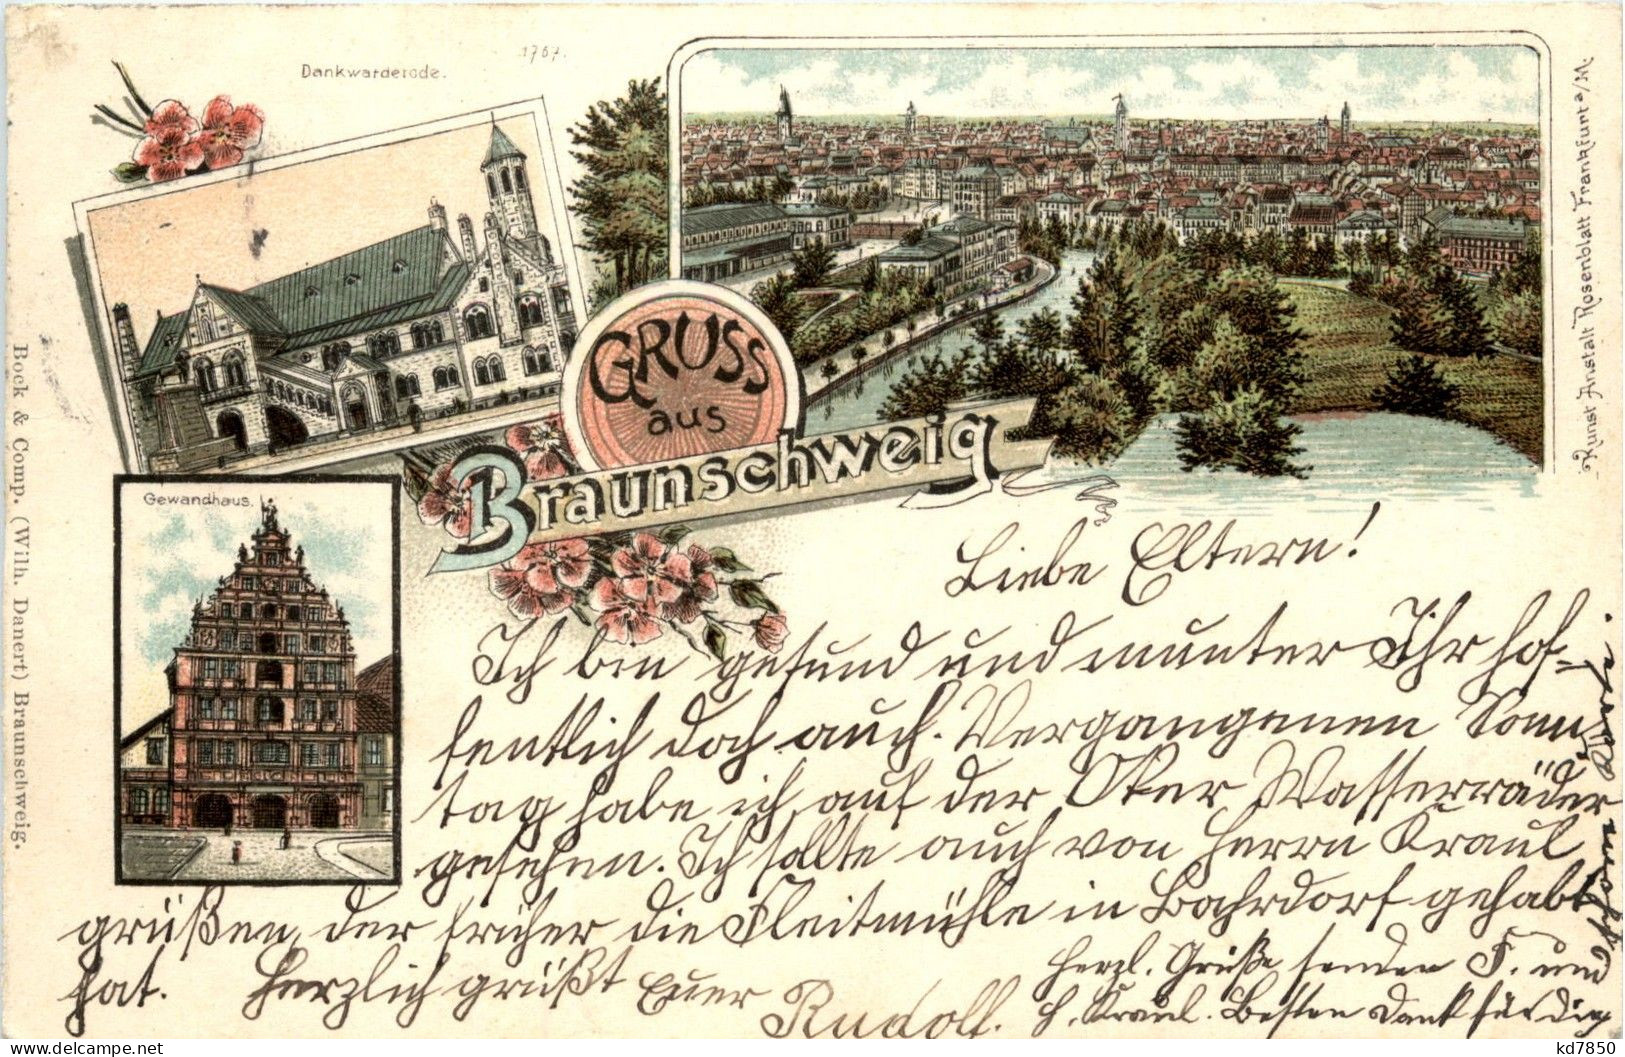 Dankwarderode.
1767.
Kunst Anstalt Rosenblatt Frankfurt a/M.
GRUSS
aus
Braunschweig
Gewandhaus.
Bock & Comp. (Wilh. Danert) Braunschweig.
Liebe Eltern!
Ich bin gesund und munter Ihr hof-
fentlich doch auch. Vergangenen Sonn-
tag habe ich auf der Oker Wasserräder
gesehen. Ich sollte auch von Herrn Kraul
grüßen, der früher die Fleitmühle in Bahrdorf gehabt
hat. Herzlich grüßt Euer
Rudolf.
Herzl. Grüße senden F. und
H. Kraul. Besten Dank für die
kd7850